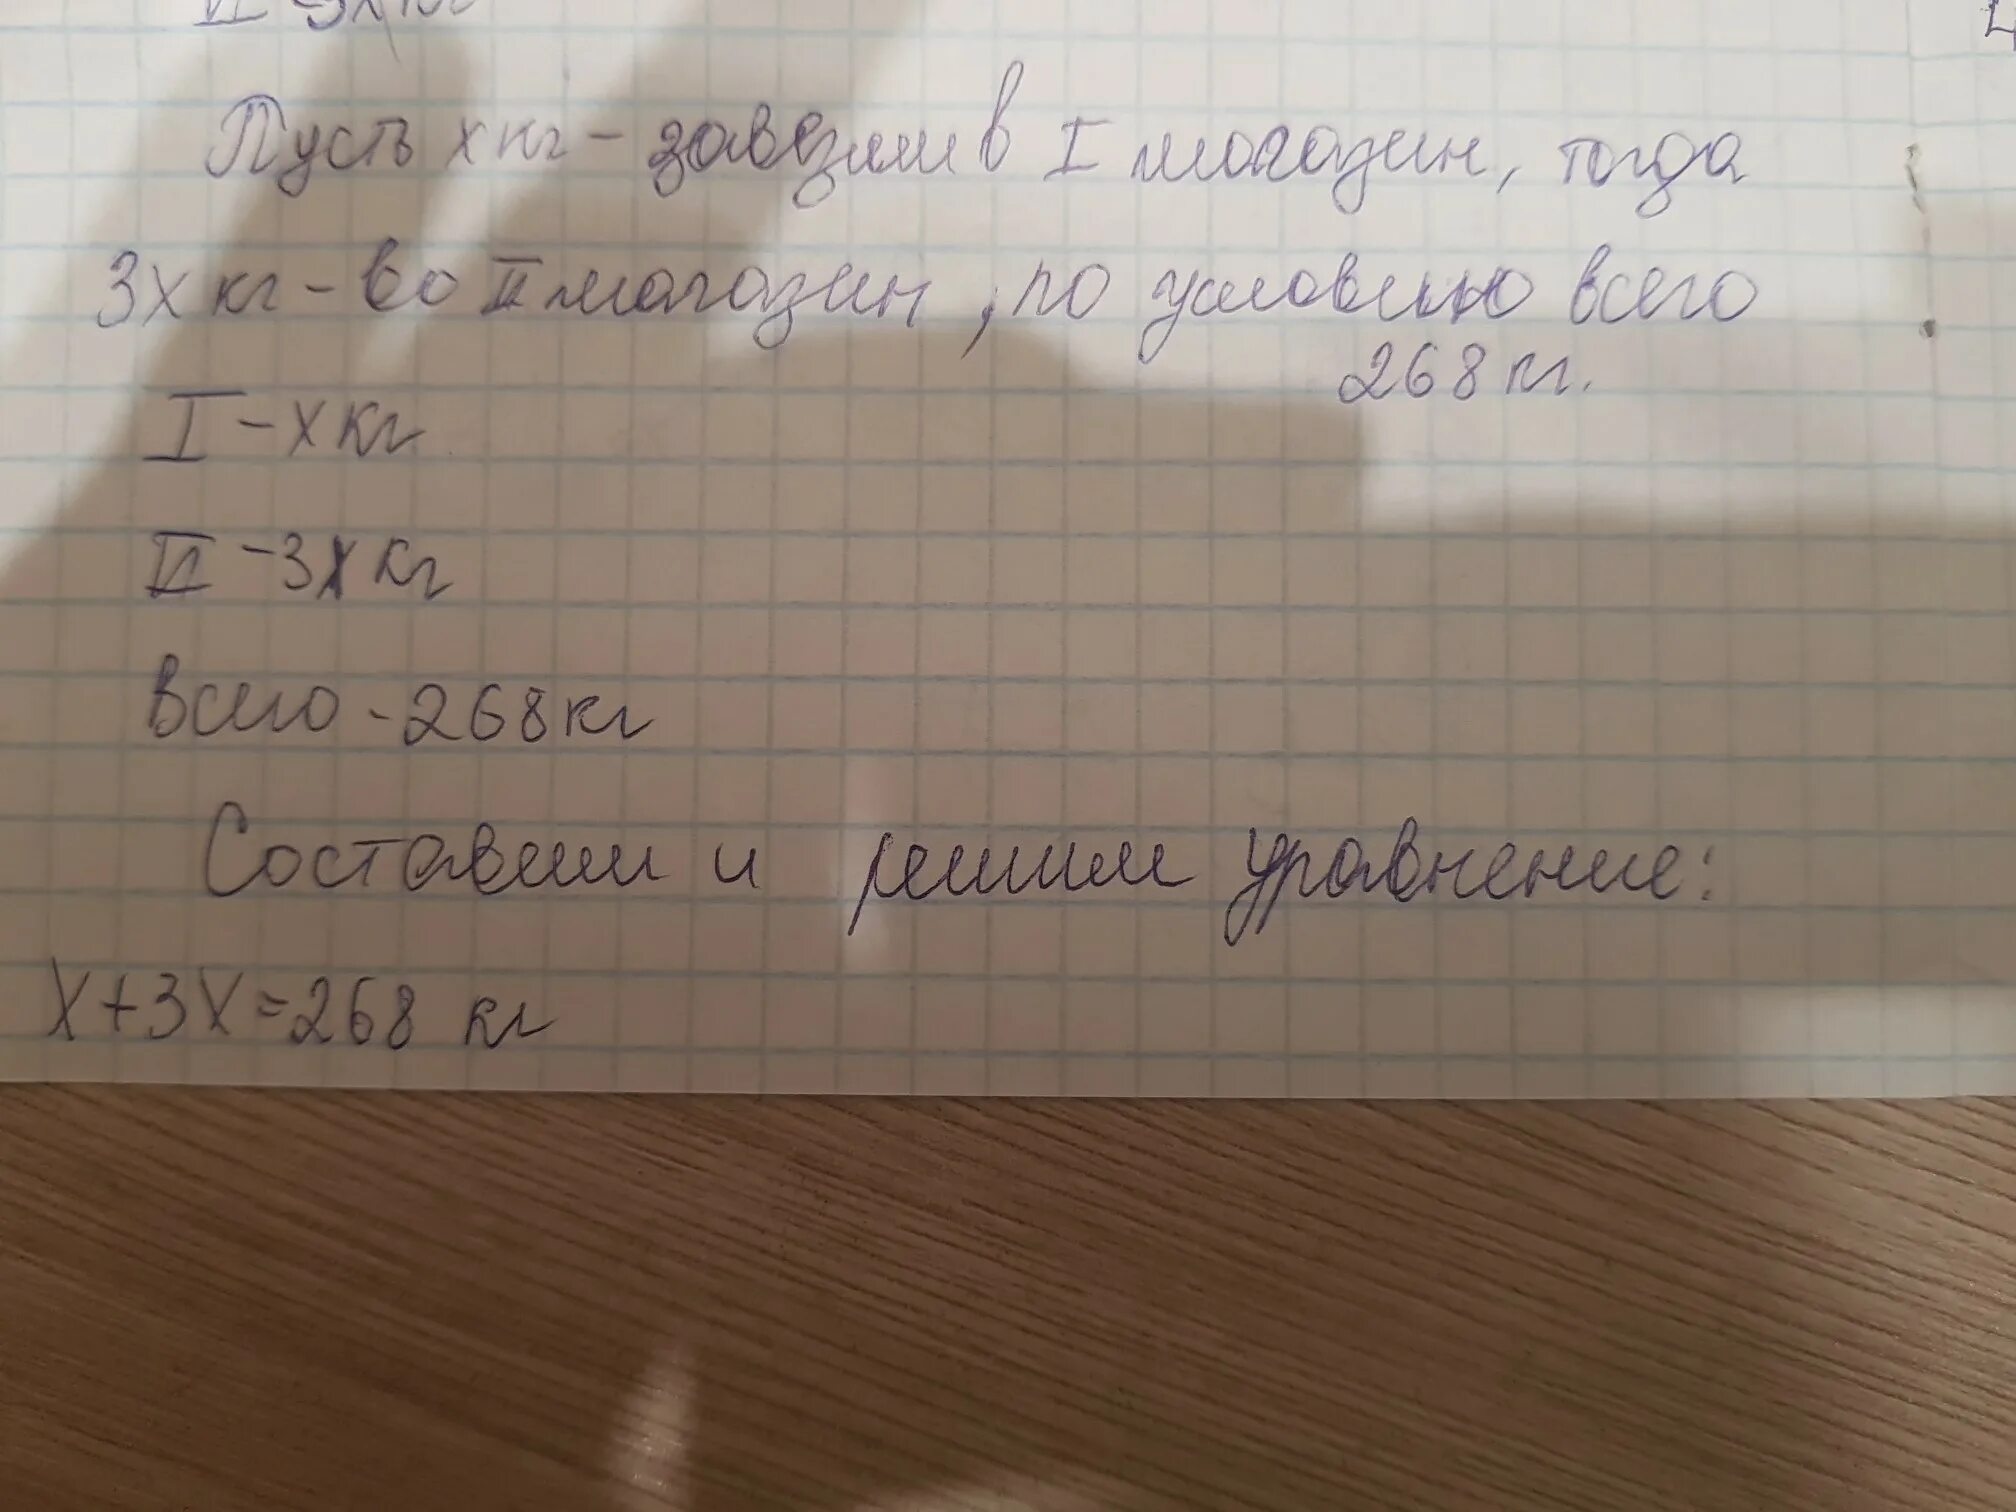 II - 3х кг
Пусть х кг - завезли в I магазин, тогда
3х кг - во II магазин, по условию всего
268 кг.
I - х кг
II - 3х кг
всего - 268 кг
Составим и решим уравнение:
х+3х=268 кг